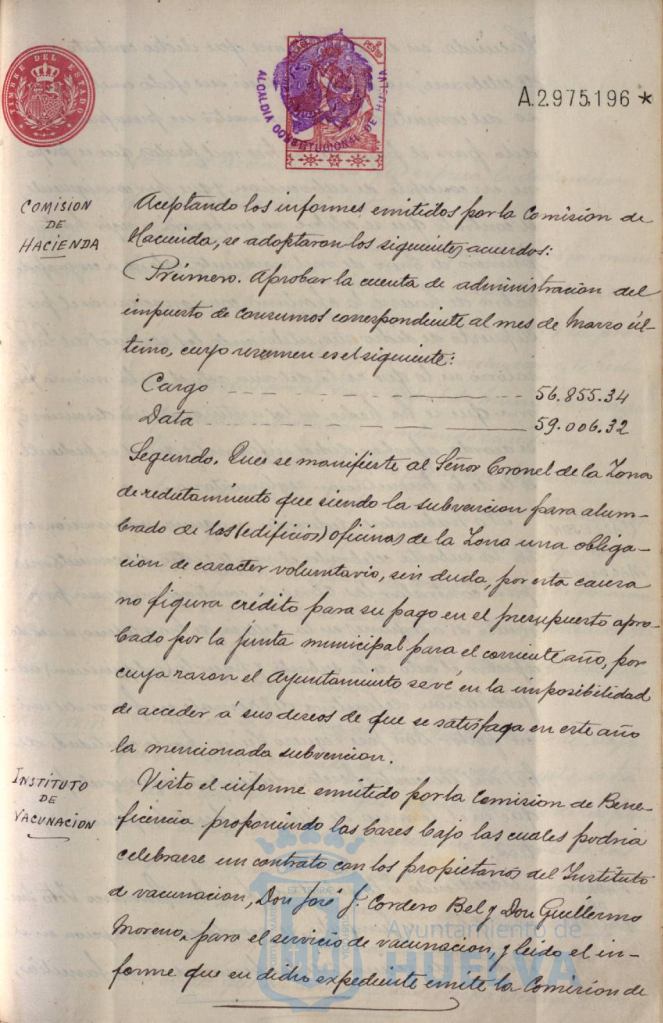 TIMBRE DEL ESTADO
ALCALDIA CONSTITUCIONAL DE HUELVA
A.2975,196 *
COMISION
DE
HACIENDA
Aceptando los informes emitidos por la Comision de
Hacienda, se adoptaron los siguientes acuerdos:
Primero. Aprobar la cuenta de administracion del
impuesto de consumos correspondiente al mes de Marzo úl-
timo, cuyo resumen es el siguiente:
Cargo 56.855.34
Data 59.006.32
Segundo. Que se manifieste al Señor Coronel de la Zona
de reclutamiento que siendo la subvencion para alum-
brado de las (edificios) oficinas de la Zona una obliga-
cion de caracter voluntario, sin duda, por esta causa
no figura crédito para su pago en el presupuesto apro-
bado por la junta municipal para el corriente año, por
cuya razon el Ayuntamiento se vé en la imposibilidad
de acceder á sus deseos de que se satisfaga en este año
la mencionada subvencion.
INSTITUTO
DE
VACUNACION
Visto el informe emitido por la Comision de Bene-
ficencia proponiendo las bases bajo las cuales podria
celebrarse un contrato con los propietarios del Instituto
de vacunacion, Don José J. Cordero Bel y Don Guillermo
Moreno, para el servicio de vacunacion, y leido el in-
forme que en dicho expediente emite la Comision de
Ayuntamiento de
HUELVA